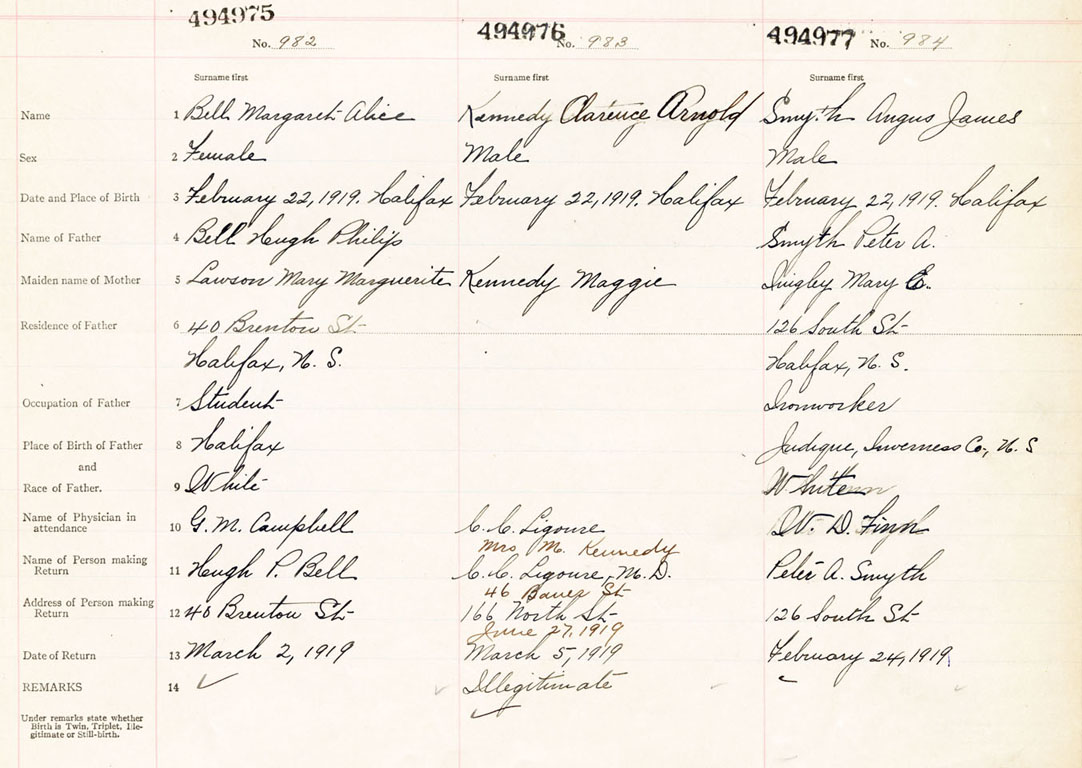 494975 494976 494977
No. 982 No. 983 No. 984
Surname first Surname first Surname first
Name 1 Bell Margaret Alice Kennedy Clarence Arnold Smyth Angus James
Sex 2 Female Male Male
Date and Place of Birth 3 February 22, 1919. Halifax February 22, 1919. Halifax February 22, 1919. Halifax
Name of Father 4 Bell Hugh Philip Smyth Peter A.
Maiden name of Mother 5 Lawson Mary Marguerite Kennedy Maggie Quigley Mary E.
Residence of Father 6 40 Brenton St 126 South St
Halifax, N. S. Halifax, N. S.
Occupation of Father 7 Student Ironworker
Place of Birth of Father 8 Halifax Judique, Inverness Co., N. S
and
Race of Father. 9 White White
Name of Physician in 10 G. M. Campbell C. C. Ligoure W. D. Finn
attendance
Mrs M. Kennedy
Name of Person making 11 Hugh P. Bell C. C. Ligoure, M. D. Peter A. Smyth
Return
46 Bauer St
Address of Person making 12 40 Brenton St 166 North St 126 South St
Return
June 27, 1919
Date of Return 13 March 2, 1919 March 5, 1919 February 24, 1919
REMARKS 14 Illegitimate
Under remarks state whether
Birth is Twin, Triplet, Ille-
gitimate or Still-birth.